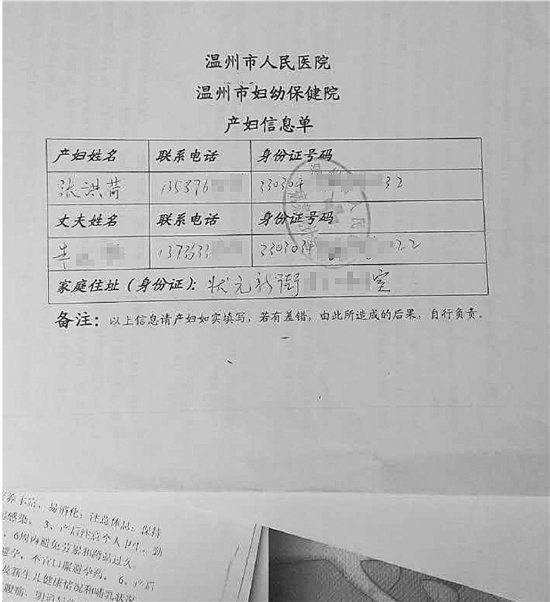 温州市人民医院
温州市妇幼保健院
产妇信息单
产妇姓名 联系电话 身份证号码
张洪苗 135876 330304 32
丈夫姓名 联系电话 身份证号码
137333 330304 22
家庭住址（身份证）：状元新街 室
备注：以上信息请产妇如实填写，若有差错，由此所造成的后果，自行负责。
易消化；注意休息；保持
感染。 3、产后注意个人卫生，勤
6周内避免劳累和蹲站过久。
避孕，不宜口服避孕药。 6、产后
及新生儿健康情况和哺乳状况